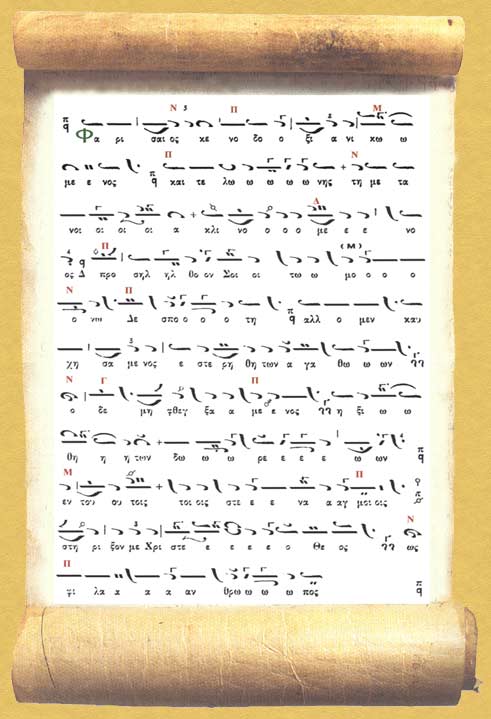 Ν Π Μ
Φα ρι σαι ος κε νο δο ο ξι α νι κω ω
Π Ν
με ε νος και τε λω ω ω ω ω νης τη με τα
Δ
νοι οι οι οι α κλι νο ο ο ο με ε ε νο
Π (Μ)
ος Δ προ σηλ ηλ θο ον Σοι οι τω ω μο ο ο ο
Ν Π
ο νω Δε σπο ο ο ο τη αλλ ο μεν καυ
χη σα με νος ε στε ρη θη των α γα θω ω ων
Ν Γ Π
ο δε μη φθεγ ξα α με ε νος η ξι ω ω
θη η η των δω ω ω ρε ε ε ε ω ων
Μ Π
εν του ου τοις τοι οις στε ε ε να α αγ μοι οις
Ν
στη ρι ξον με Χρι στε ε ε ε ε ο Θε ος ως
Π
φι λα α α α αν θρω ω ω ω ω πος